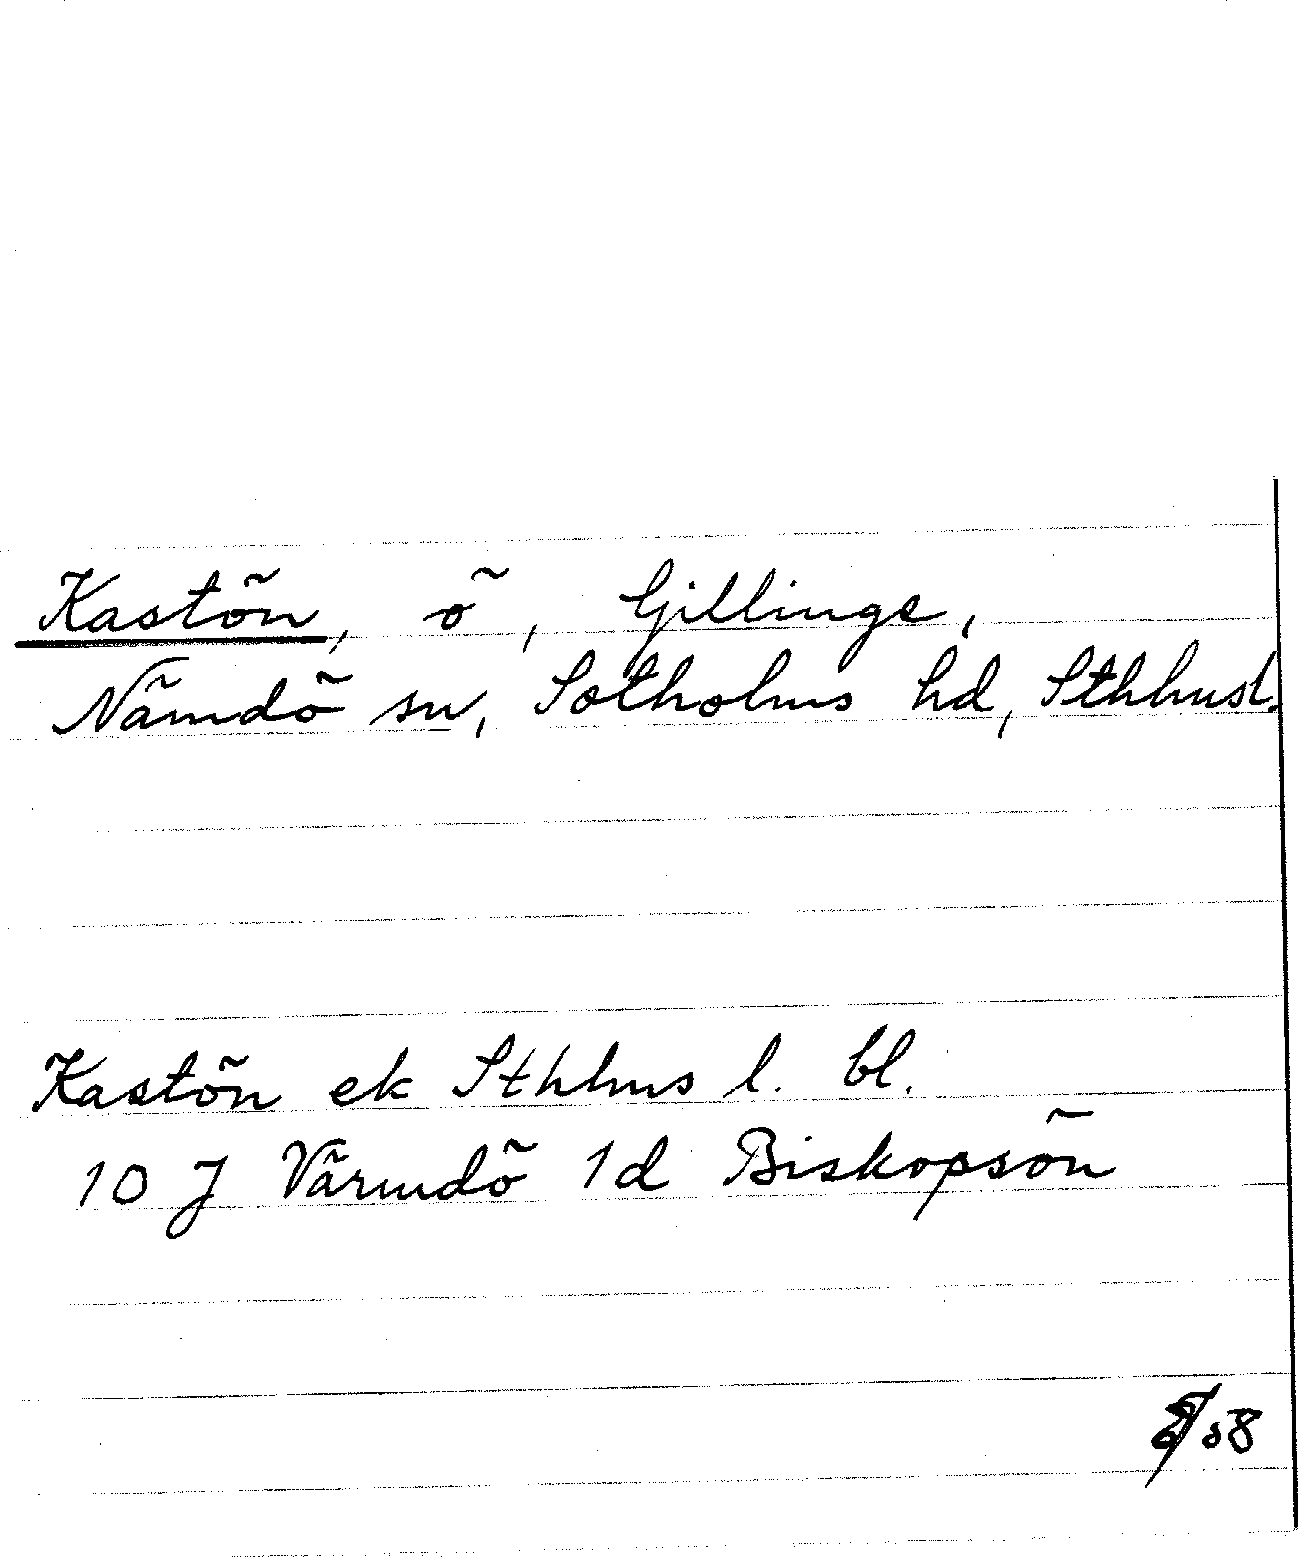 Kastön, ö, Gillinge,
Nämdö sn, Sotholms hd, Sthlmsl.
Kastön ek Sthlms l. bl.
10 J Värmdö 1d Biskopsön
58